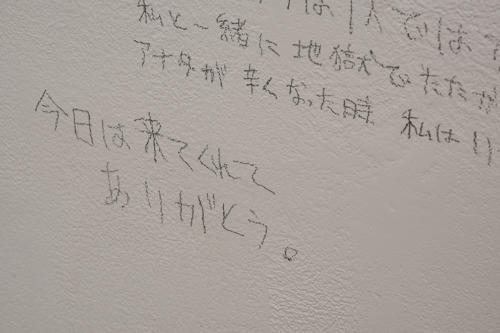 は1人では
私と一緒に地獄でたたか
アナタが辛くなった時 私はい
今日は来てくれて
ありがとう。